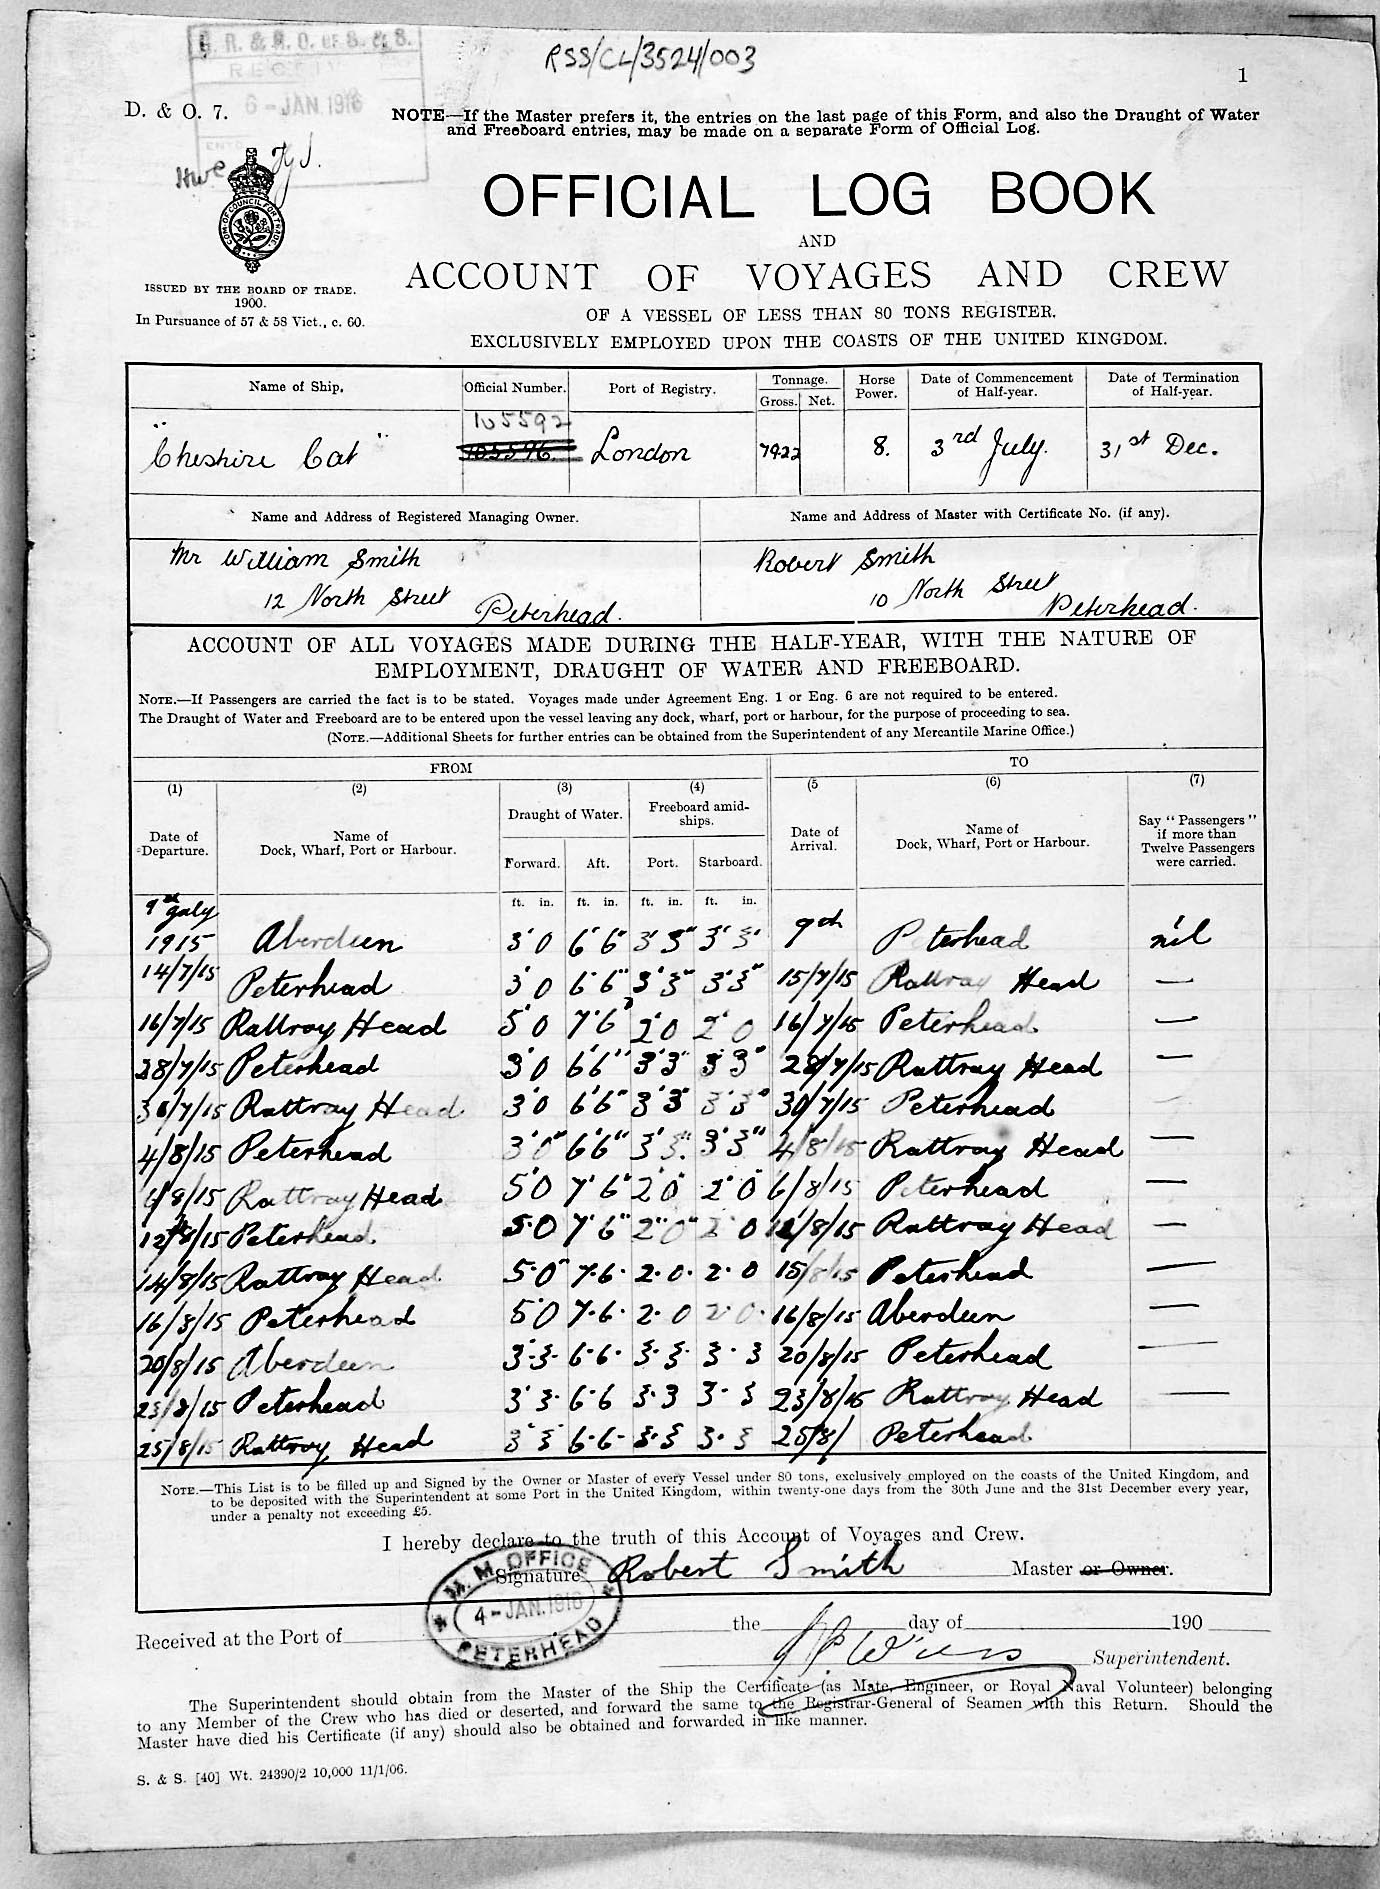 G. R. & R. O. OF S. & S.
RSS/CL/3524/003
1
6-JAN 1916
D. & O. 7.
NOTE—If the Master prefers it, the entries on the last page of this Form, and also the Draught of Water
and Freeboard entries, may be made on a separate Form of Official Log.
COM. OF COUNCIL FOR TRADE.
OFFICIAL LOG BOOK
AND
ACCOUNT OF VOYAGES AND CREW
ISSUED BY THE BOARD OF TRADE.
1900.
In Pursuance of 57 & 58 Vict., c. 60.
OF A VESSEL OF LESS THAN 80 TONS REGISTER.
EXCLUSIVELY EMPLOYED UPON THE COASTS OF THE UNITED KINGDOM.
Name of Ship. Official Number. Port of Registry. Tonnage. Gross. Net. Horse Power. Date of Commencement of Half-year. Date of Termination of Half-year.
105592
"Cheshire Cat" 105596. London 79.22 8. 3rd July. 31st Dec.
Name and Address of Registered Managing Owner. Name and Address of Master with Certificate No. (if any).
Mr William Smith Robert Smith
12 North Street Peterhead. 10 North Street Peterhead.
ACCOUNT OF ALL VOYAGES MADE DURING THE HALF-YEAR, WITH THE NATURE OF
EMPLOYMENT, DRAUGHT OF WATER AND FREEBOARD.
NOTE.—If Passengers are carried the fact is to be stated. Voyages made under Agreement Eng. 1 or Eng. 6 are not required to be entered.
The Draught of Water and Freeboard are to be entered upon the vessel leaving any dock, wharf, port or harbour, for the purpose of proceeding to sea.
(NOTE.—Additional Sheets for further entries can be obtained from the Superintendent of any Mercantile Marine Office.)
FROM TO
(1) (2) (3) (4) (5 (6) (7)
Date of Departure. Name of Dock, Wharf, Port or Harbour. Draught of Water. Freeboard amid-ships. Date of Arrival. Name of Dock, Wharf, Port or Harbour. Say "Passengers" if more than Twelve Passengers were carried.
Forward. Aft. Port. Starboard.
ft. in. ft. in. ft. in. ft. in.
9th July
1915 Aberdeen 3'0 6'6" 3'3" 3'3" 9th Peterhead nil
14/7/15 Peterhead 3'0 6'6" 3'3" 3'3" 15/7/15 Rattray Head —
16/7/15 Rattray Head 5'0 7'6" 2'0 2'0 16/7/15 Peterhead —
28/7/15 Peterhead 3'0 6'6" 3'3" 3'3" 28/7/15 Rattray Head —
30/7/15 Rattray Head 3'0 6'6" 3'3" 3'3" 30/7/15 Peterhead —
4/8/15 Peterhead 3'0" 6'6" 3'3" 3'3" 4/8/15 Rattray Head —
6/8/15 Rattray Head 5'0 7'6" 2'0" 2'0" 6/8/15 Peterhead —
12/8/15 Peterhead 5.0 7'6" 2"0" 2 0 12/8/15 Rattray Head —
14/8/15 Rattray Head 5.0" 7.6. 2.0. 2.0 15/8/15 Peterhead —
16/8/15 Peterhead 5'0 7.6. 2.0 2.0. 16/8/15 Aberdeen —
20/8/15 Aberdeen 3.3. 6.6. 3.3. 3.3 20/8/15 Peterhead —
23/8/15 Peterhead 3'3. 6.6 3.3 3.3 23/8/15 Rattray Head —
25/8/15 Rattray Head 3'3 6.6- 3.3 3.3 25/8/ Peterhead
NOTE.—This List is to be filled up and Signed by the Owner or Master of every Vessel under 80 tons, exclusively employed on the coasts of the United Kingdom, and
to be deposited with the Superintendent at some Port in the United Kingdom, within twenty-one days from the 30th June and the 31st December every year,
under a penalty not exceeding £5.
I hereby declare to the truth of this Account of Voyages and Crew.
Signature Robert Smith Master or Owner.
M. M. OFFICE
4-JAN.1916
PETERHEAD
Received at the Port of the day of 190
Superintendent.
The Superintendent should obtain from the Master of the Ship the Certificate (as Mate, Engineer, or Royal Naval Volunteer) belonging
to any Member of the Crew who has died or deserted, and forward the same to the Registrar-General of Seamen with this Return. Should the
Master have died his Certificate (if any) should also be obtained and forwarded in like manner.
S. & S. [40] Wt. 24390/2 10,000 11/1/06.